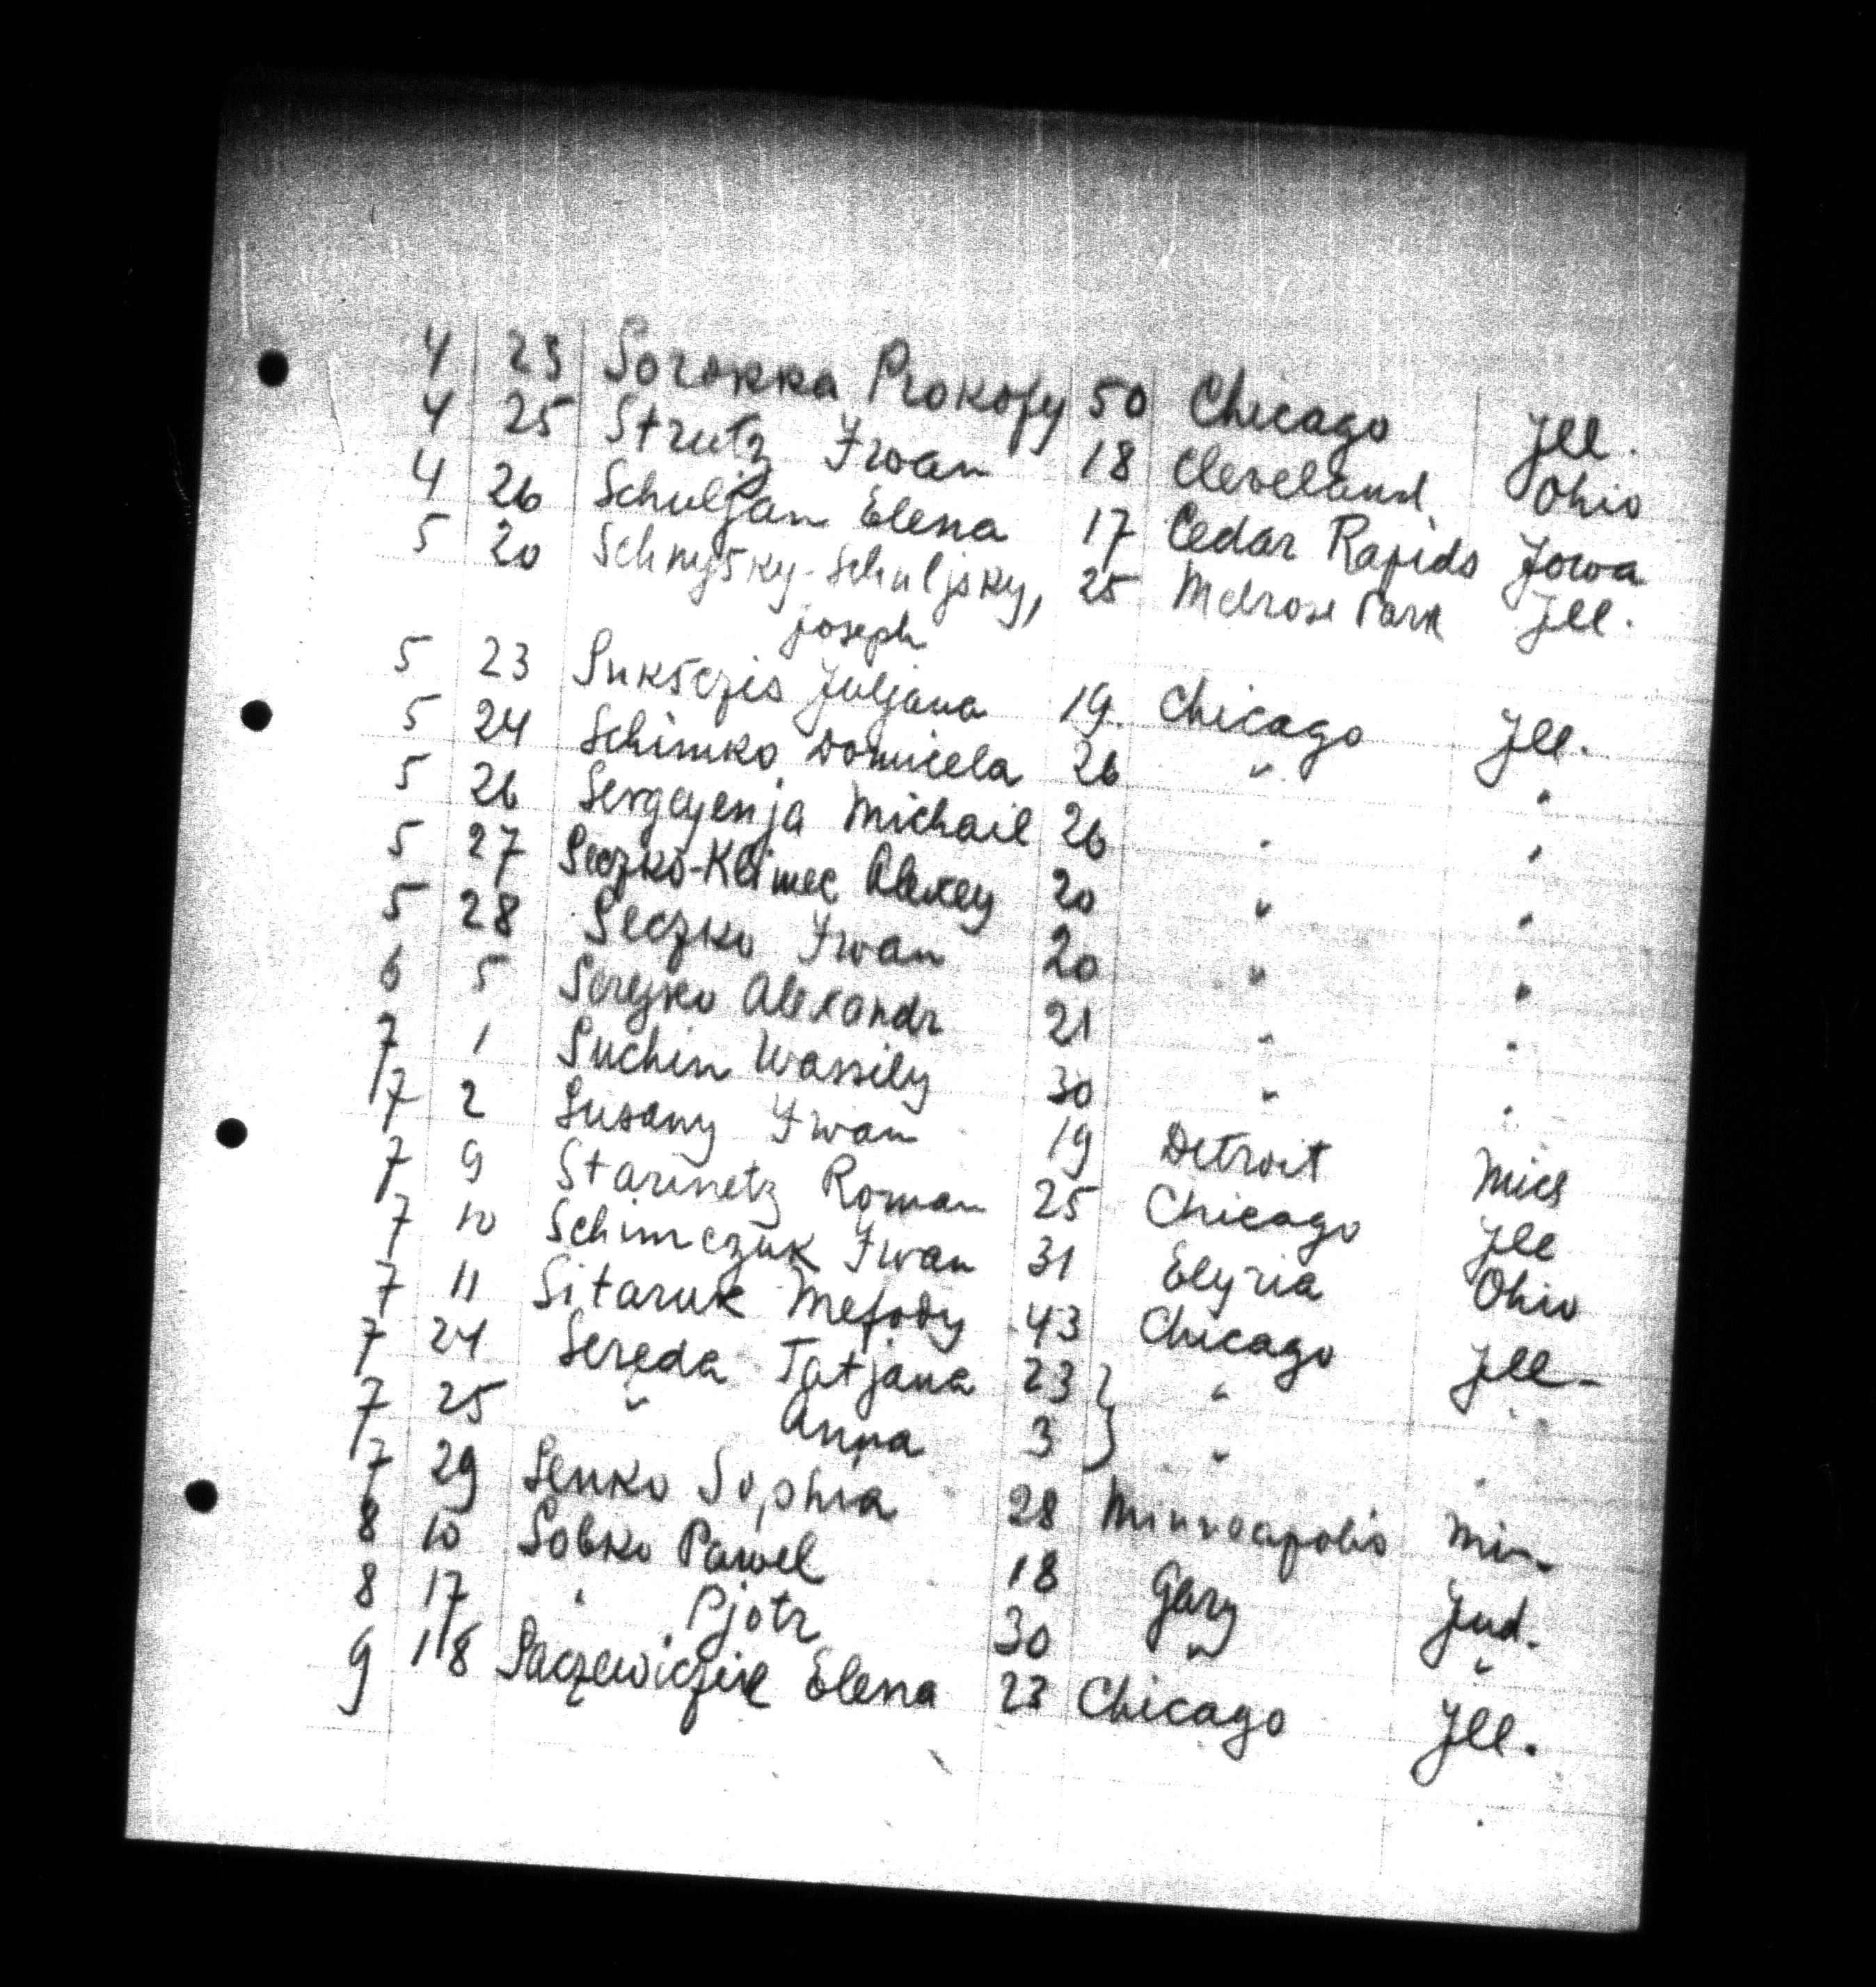 4 23 Sorokka Prokofy 50 Chicago Jll.
4 25 Strutz Iwan 18 Cleveland Ohio
4 26 Schuljan Elena 17 Cedar Rapids Jowa
5 20 Schnyšky-Schuljsky, 25 Melrose Park Jll.
joseph
5 23 Sukščzis Juljana 19. Chicago Jll.
5 24 Schimko Domicela 26 " "
5 26 Sergeyenja Michail 26 " "
5 27 Seczko-Klimec Alexey 20 " "
5 28 Seczko Iwan 20 " "
6 5 Serejko Alexandr 21 " "
7 1 Suchin Wassily 30 " "
7 2 Susany Iwan 19 Detroit Mich
7 9 Starinetz Roman 25 Chicago Jll
7 10 Schimczuk Iwan 31 Elyria Ohio
7 11 Sitaruk Mefody 43 Chicago Jll-
7 24 Sereda Tatjana 23 } " "
7 25 " Anna 3 } " "
7 29 Senko Sophia 28 Minneapolis Min
8 10 Sobko Pawel 18 Gary Jnd.
8 17 " Pjotr 30 " "
9 18 Elena 23 Chicago Jll.